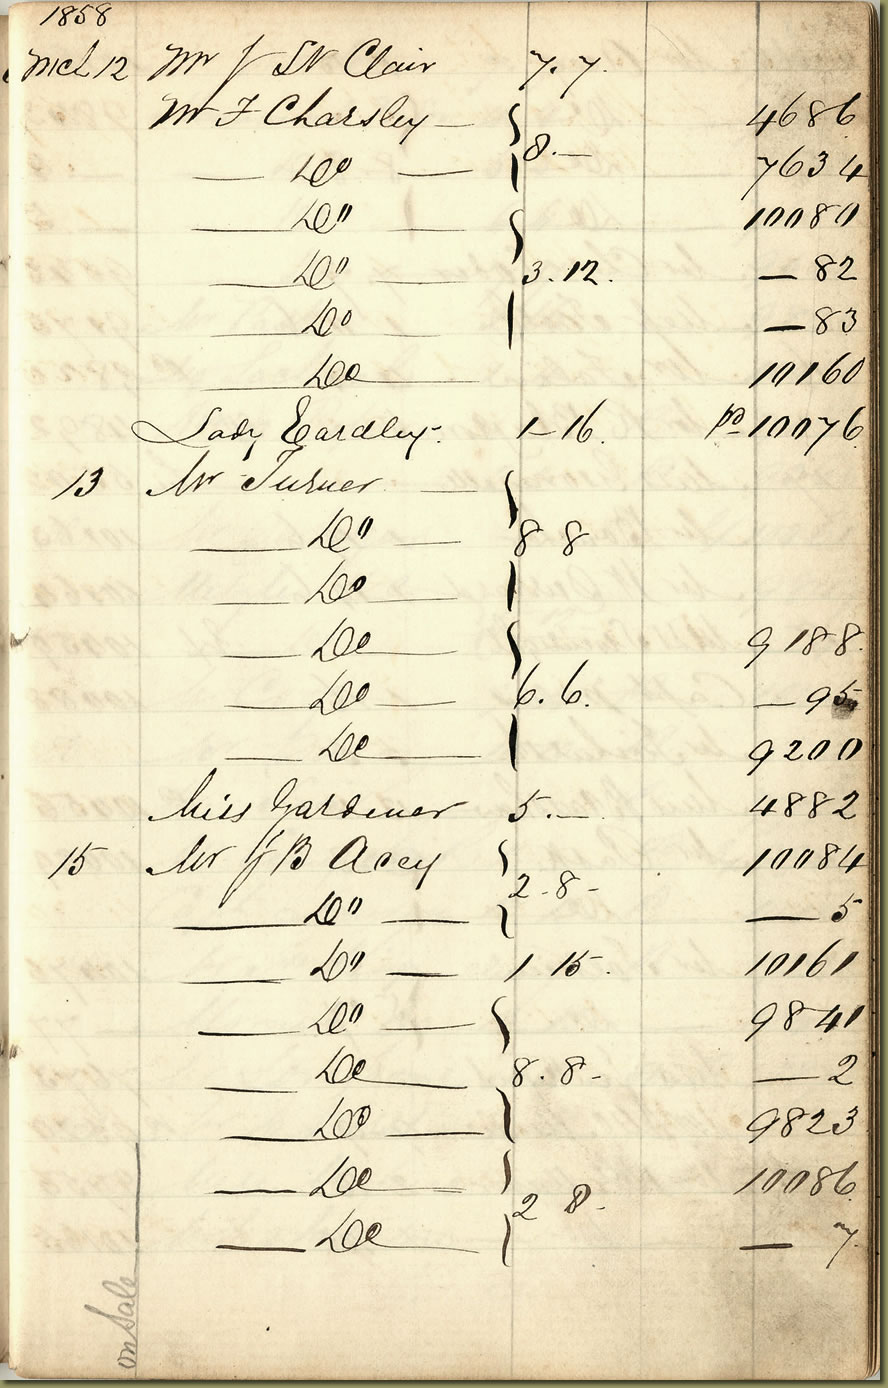 1858
Mch 12 Mr J St Clair 7.7.
Mr F Charsley — 4686
— Do — 8.— 7634
— Do — 10080
— Do — 3.12. — 82
— Do — — 83
— Do — 10160
Lady Eardley. 1-16. pd 10076
13 Mr Turner —
— Do — 8 8
— Do —
— Do — 9188.
— Do — 6.6. — 95
— Do — 9200
Miss Gardener 5.— 4882
15 Mr J B Acey 10084
— Do — 2-8- — 5
— Do — 1 15. 10161
— Do — 9841
— Do — 8.8- — 2
— Do — 9823
— Do — 10086
— Do — 2 8. — 7
on Sale